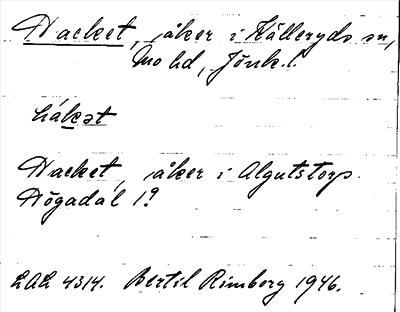 Hacket, åker i Källeryds sn,
Mo hd, Jönk.l.
håkət
Hacket, åker i Algutstorp
Högadal 1?
LAL 4314. Bertil Rimborg 1946.